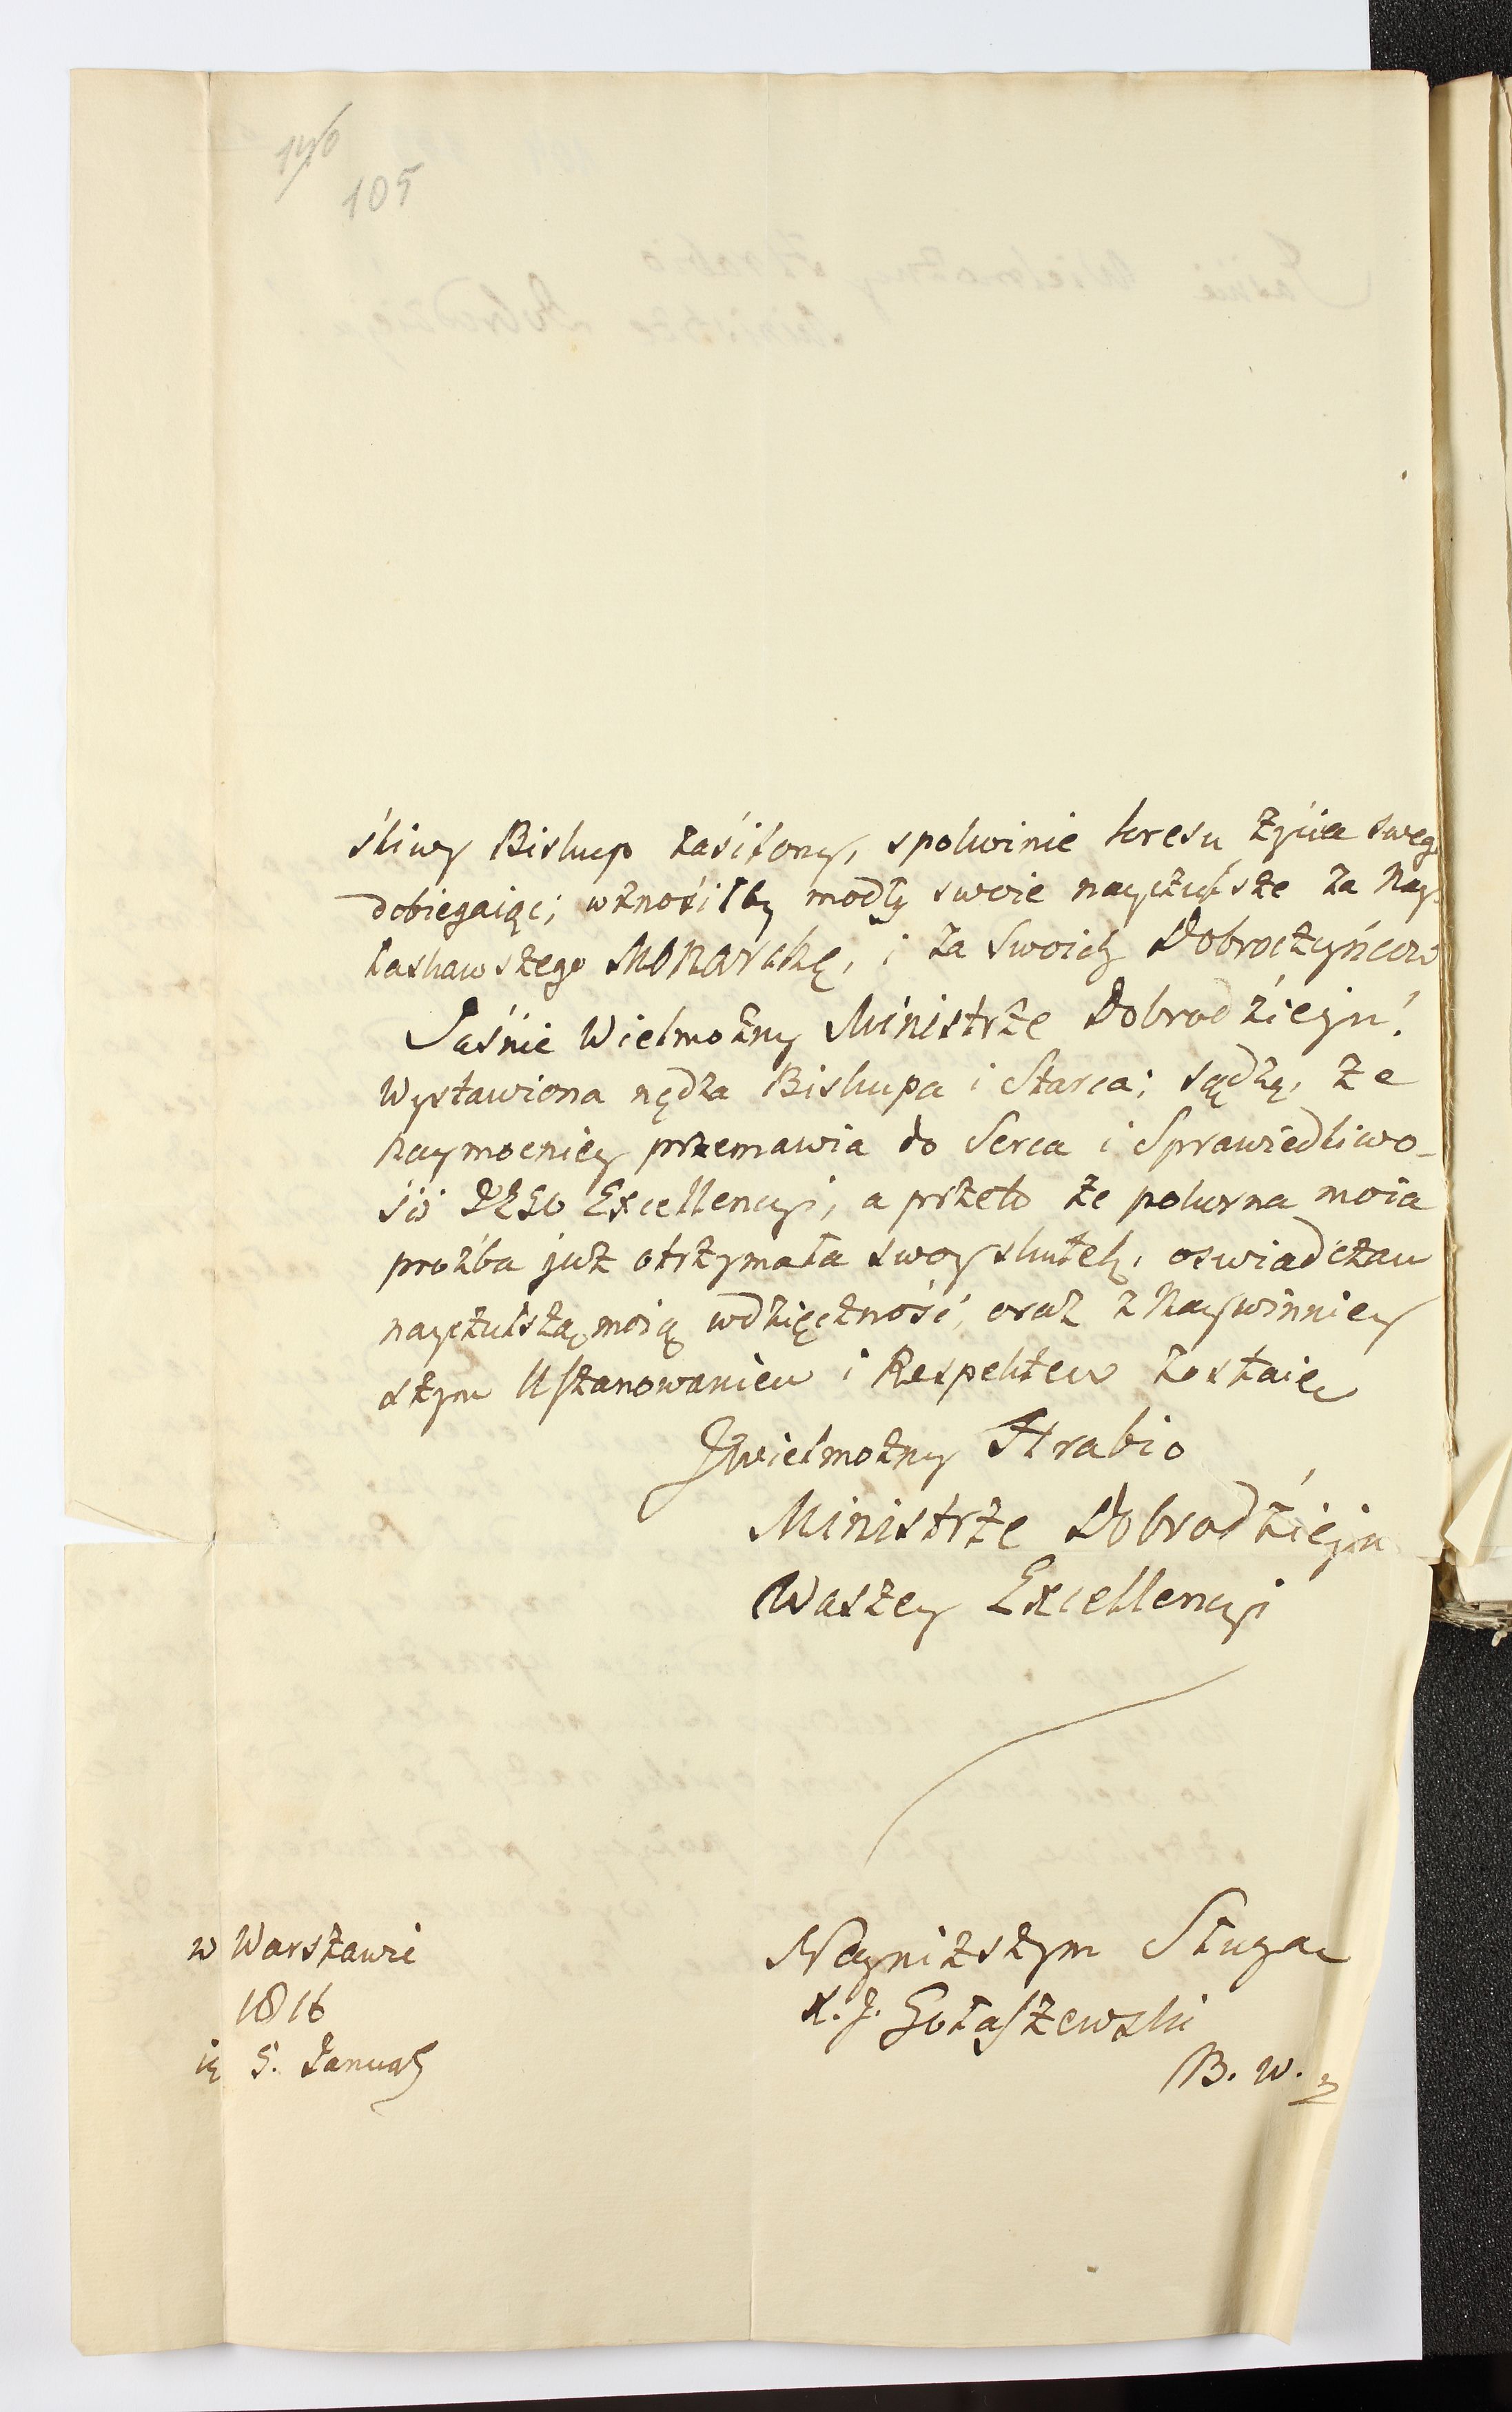 140
105
śliwy Biskup zasilony, spokoinie kresu życia swego
dobiegaiąc; wznosiłby modły swoie nayczulsze za Nay-
łaskawszego Monarchę, i za Swoich Dobroczyńców
Jaśnie Wielmożny Ministrze Dobrodzieju!
Wystawiona nędza Biskupa i Starca; sądzę, że
naymocniey przemawia do Serca i Sprawiedliwo-
ści JEGo Excellencyi, a przeto że pokorna moia
proźba już otrzymała swoy skutek, oswiadczam
nayczulszą moią wdzięczność, oraz z Naywinniey
szym Uszanowaniem i Respektem zostaię
JWielmożny Hrabio
Ministrze Dobrodzieju
Waszey Excellencyi
w Warszawie
1816
5. Januar
Nayniższym Sługą
X. J. Gołaszewski
B. W.